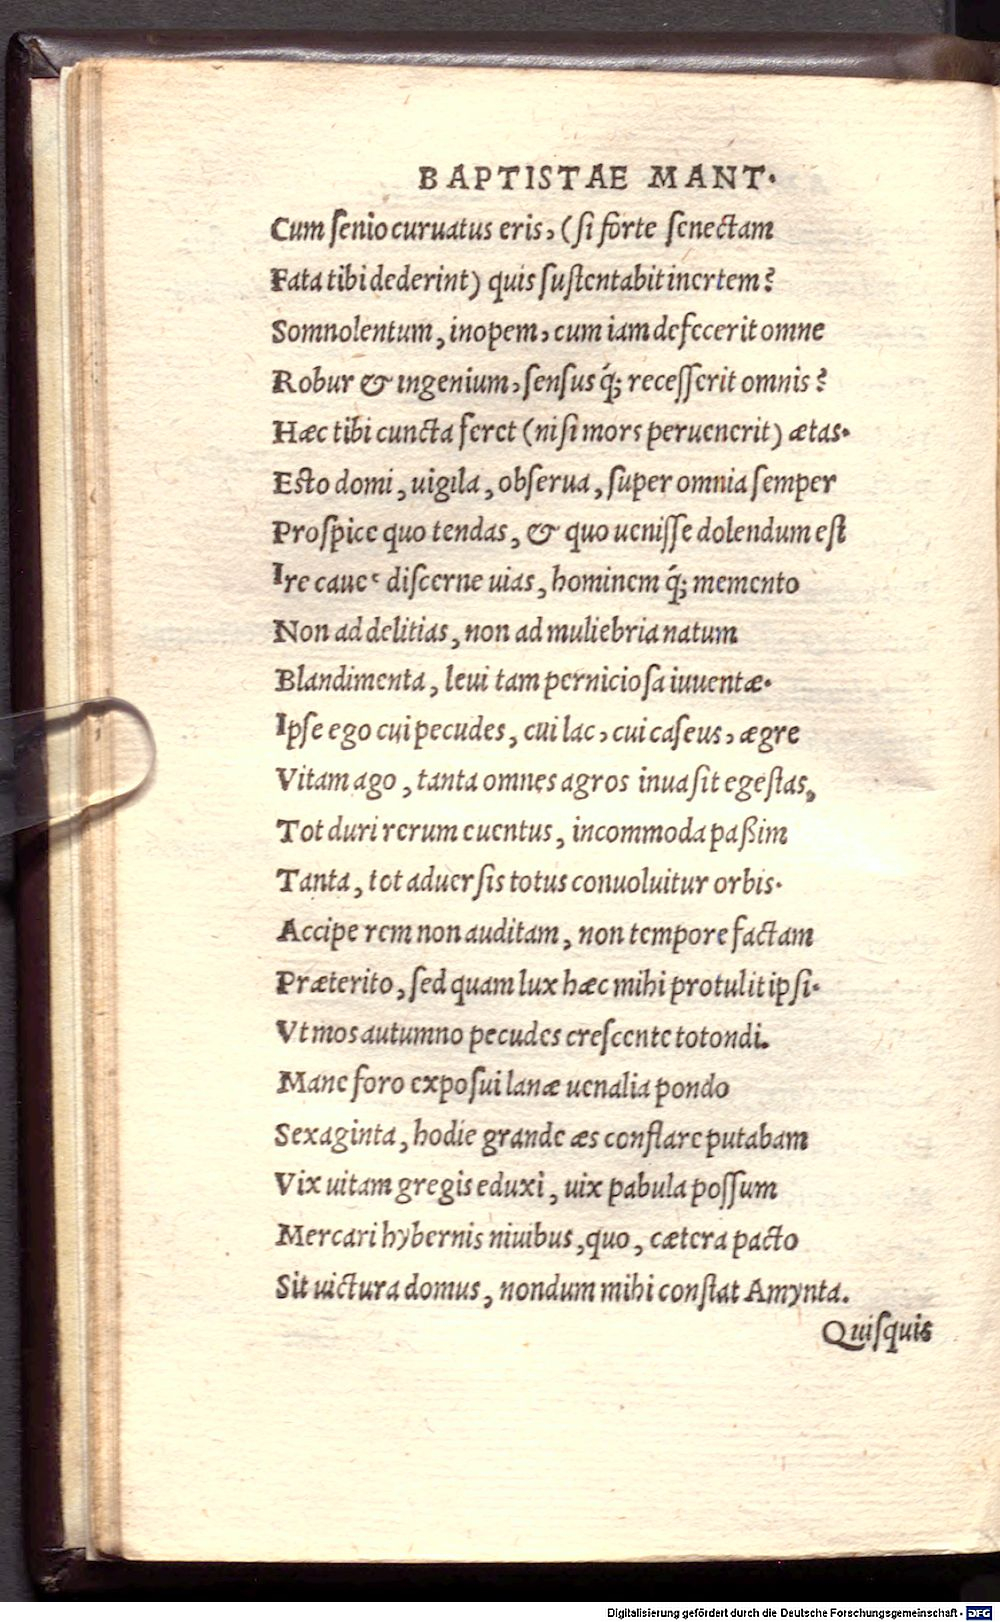 BAPTISTAE MANT.
Cum ſenio curuatus eris, (ſi forte ſenectam
Fata tibi dederint) quis ſuſtentabit inertem?
Somnolentum, inopem, cum iam defecerit omne
Robur & ingenium, ſenſus q́; receſſerit omnis?
Hæc tibi cuncta feret (niſi mors peruenerit) ætas.
Eſto domi, uigila, obſerua, ſuper omnia ſemper
Proſpice quo tendas, & quo ueniſſe dolendum eſt
Ire caue: diſcerne uias, hominem q́; memento
Non ad delitias, non ad muliebria natum
Blandimenta, leui tam pernicioſa iuuentæ.
Ipſe ego cui pecudes, cui lac, cui caſeus, ægre
Vitam ago, tanta omnes agros inuaſit egeſtas,
Tot duri rerum euentus, incommoda paßim
Tanta, tot aduerſis totus conuoluitur orbis.
Accipe rem non auditam, non tempore factam
Præterito, ſed quam lux hæc mihi protulit ipſi.
Vt mos autumno pecudes creſcente totondi.
Mane foro expoſui lanæ uenalia pondo
Sexaginta, hodie grande æs conflare putabam
Vix uitam gregis eduxi, uix pabula poſſum
Mercari hybernis niuibus, quo, cætera pacto
Sit uictura domus, nondum mihi conſtat Amynta.
Quiſquis
Digitalisierung gefördert durch die Deutsche Forschungsgemeinschaft - DFG